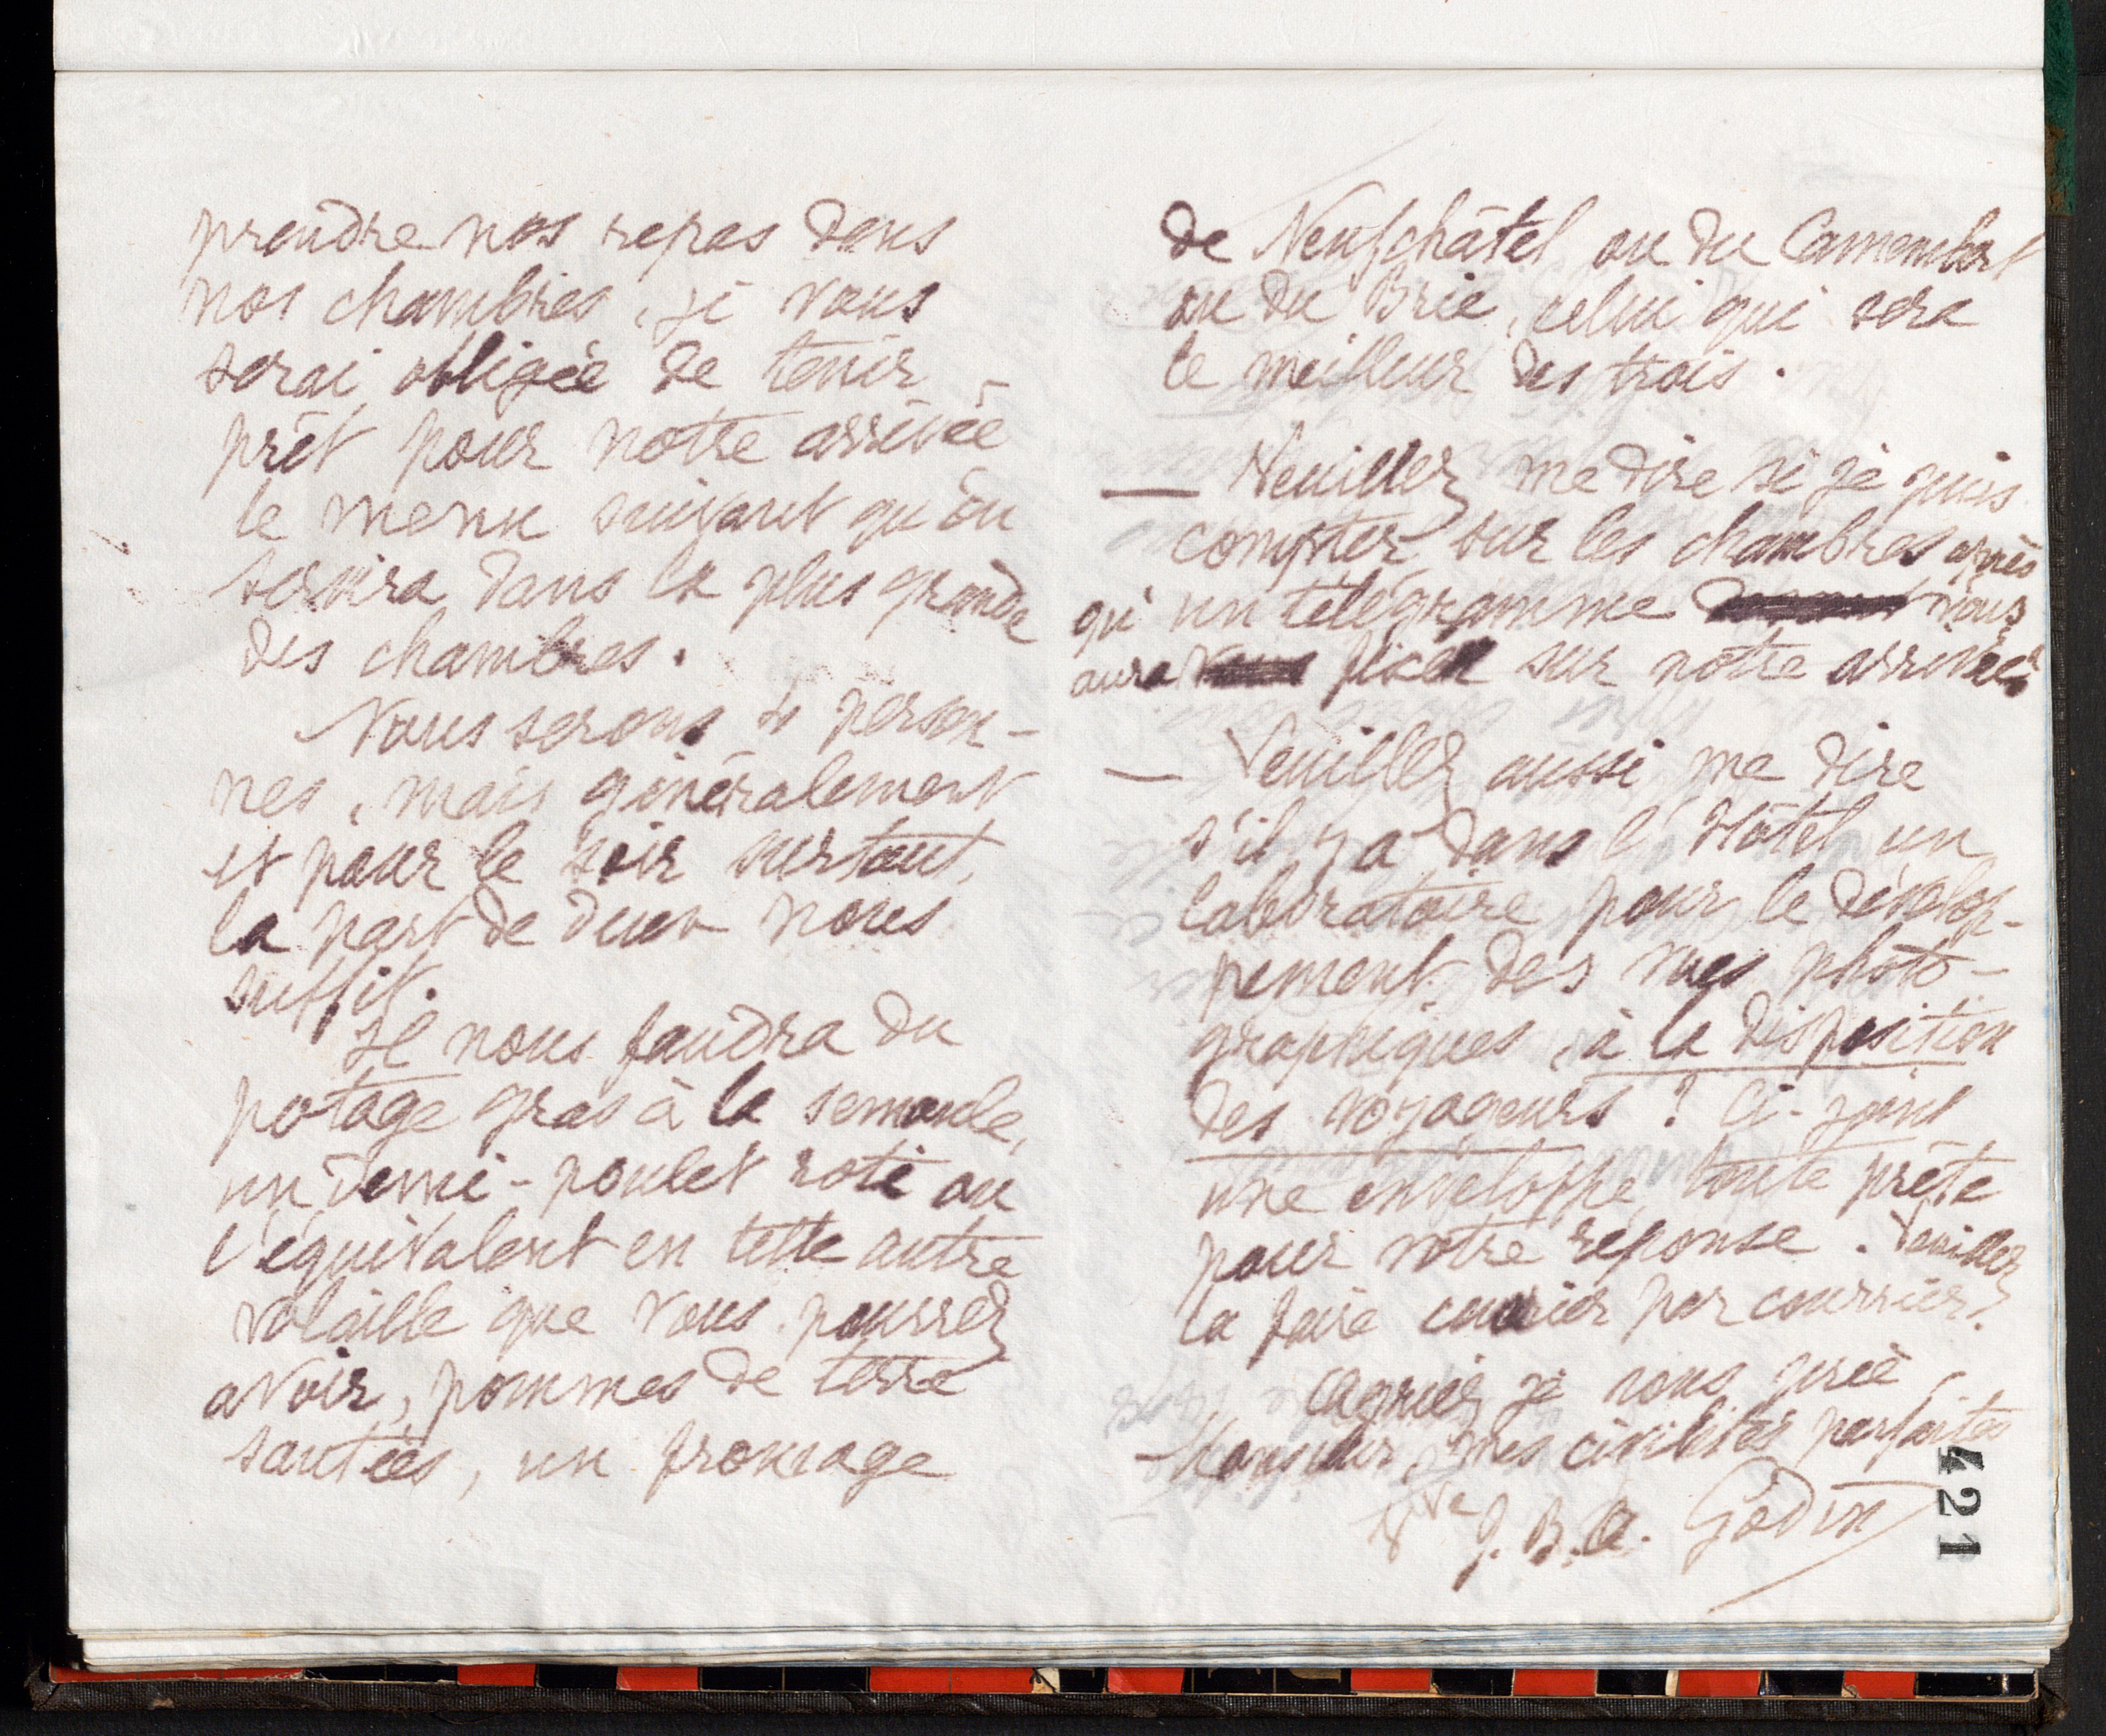 prendre nos repas dans
nos chambres, je vous
serai obligée de tenir
prêt pour notre arrivée
le menu suivant qu'on
servira dans la plus grande
des chambres.
Nous serons 4 person-
nes, mais généralement
et pour le soir surtout,
la part de deux nous
suffit.
Il nous faudra du
potage gras à la semoule,
un demi-poulet roti ou
l'équivalent en telle autre
volaille que vous pourrez
avoir, pommes de terre
sautées, un fromage
de Neufchâtel ou du Camembert
ou du Brie, celui qui sera
le meilleur des trois.
— Veuillez me dire si je puis
compter sur les chambres après
qu'un télégramme vous
aura fixer sur notre arrivée.
— Veuillez aussi me dire
s'il y a dans l'Hôtel un
laboratoire pour le dévelop-
pement des vues photo-
graphiques, à la disposition
des voyageurs ? Ci-joint
une enveloppe toute prête
pour votre réponse. Veuillez
la faire courrier par courrier ?
Agréez je vous prie
Monsieur, mes civilités parfaites
Vve J. B. A. Godin
421